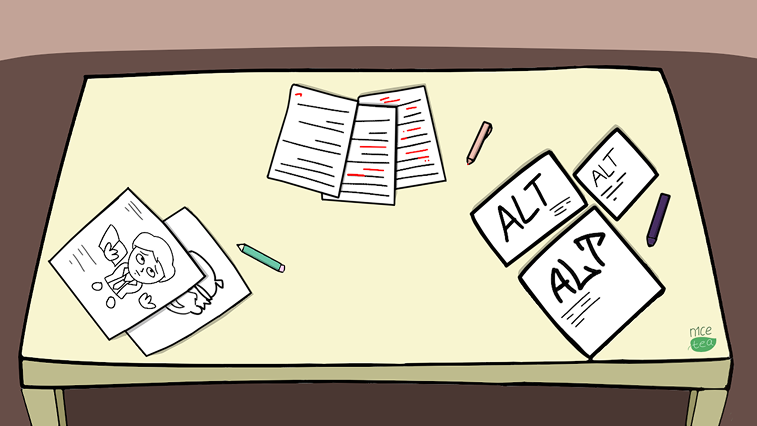 ALT
ALT
ALT
mce
tea